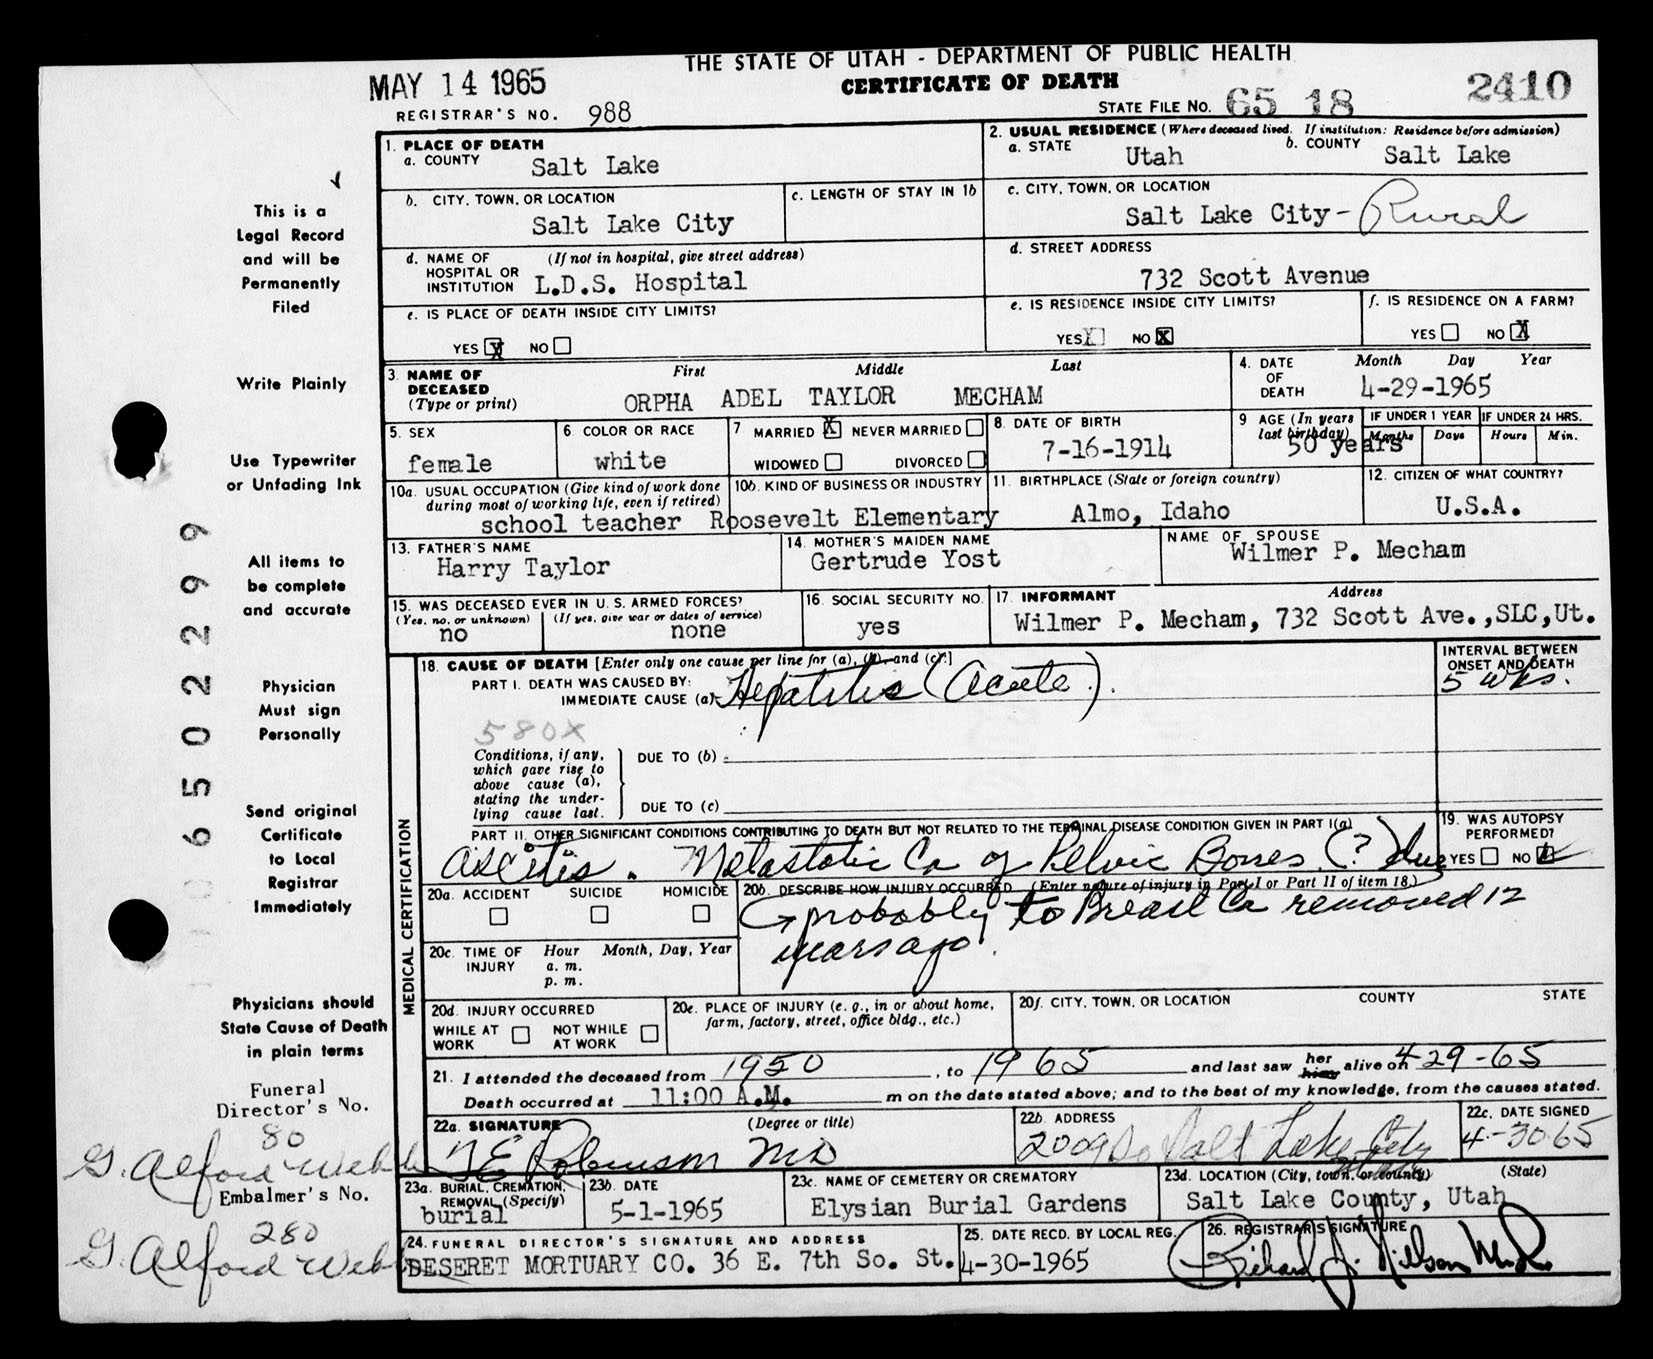 THE STATE OF UTAH - DEPARTMENT OF PUBLIC HEALTH
MAY 14 1965
CERTIFICATE OF DEATH
2410
REGISTRAR'S NO. 988
STATE FILE NO. 65 18
1. PLACE OF DEATH
a. COUNTY Salt Lake
2. USUAL RESIDENCE (Where deceased lived. If institution: Residence before admission)
a. STATE Utah b. COUNTY Salt Lake
b. CITY, TOWN, OR LOCATION
Salt Lake City
c. LENGTH OF STAY IN 1b
c. CITY, TOWN, OR LOCATION
Salt Lake City - Rural
d. NAME OF HOSPITAL OR INSTITUTION (If not in hospital, give street address)
L.D.S. Hospital
d. STREET ADDRESS
732 Scott Avenue
e. IS PLACE OF DEATH INSIDE CITY LIMITS?
YES X NO
e. IS RESIDENCE INSIDE CITY LIMITS?
YES X NO X
f. IS RESIDENCE ON A FARM?
YES NO X
3. NAME OF DECEASED (Type or print)
First Middle Last
ORPHA ADEL TAYLOR MECHAM
4. DATE OF DEATH Month Day Year
4-29-1965
5. SEX
female
6 COLOR OR RACE
white
7 MARRIED X NEVER MARRIED
WIDOWED DIVORCED
8. DATE OF BIRTH
7-16-1914
9 AGE (In years last birthday)
50 years
IF UNDER 1 YEAR
Months Days
IF UNDER 24 HRS.
Hours Min.
10a. USUAL OCCUPATION (Give kind of work done during most of working life, even if retired)
school teacher
10b. KIND OF BUSINESS OR INDUSTRY
Roosevelt Elementary
11. BIRTHPLACE (State or foreign country)
Almo, Idaho
12. CITIZEN OF WHAT COUNTRY?
U.S.A.
13. FATHER'S NAME
Harry Taylor
14. MOTHER'S MAIDEN NAME
Gertrude Yost
NAME OF SPOUSE
Wilmer P. Mecham
15. WAS DECEASED EVER IN U.S. ARMED FORCES?
(Yes, no. or unknown) (If yes, give war or dates of service)
no none
16. SOCIAL SECURITY NO.
yes
17. INFORMANT Address
Wilmer P. Mecham, 732 Scott Ave.,SLC,Ut.
MEDICAL CERTIFICATION
18. CAUSE OF DEATH [Enter only one cause per line for (a), (b), and (c).]
INTERVAL BETWEEN ONSET AND DEATH
PART I. DEATH WAS CAUSED BY:
IMMEDIATE CAUSE (a) Hepatitis (Acute). 5 wks.
580X
Conditions, if any, which gave rise to above cause (a), stating the underlying cause last.
DUE TO (b)
DUE TO (c)
PART II. OTHER SIGNIFICANT CONDITIONS CONTRIBUTING TO DEATH BUT NOT RELATED TO THE TERMINAL DISEASE CONDITION GIVEN IN PART I(a)
Ascitis. Metastatic Ca of Pelvic Bones (?) due
19. WAS AUTOPSY PERFORMED?
YES NO
20a. ACCIDENT SUICIDE HOMICIDE
20b. DESCRIBE HOW INJURY OCCURRED (Enter nature of injury in Part I or Part II of item 18.)
probably to Breast Ca removed 12
years ago.
20c. TIME OF INJURY Hour Month, Day, Year
a. m.
p. m.
20d. INJURY OCCURRED
WHILE AT WORK NOT WHILE AT WORK
20e. PLACE OF INJURY (e. g., in or about home, farm, factory, street, office bldg., etc.)
20f. CITY, TOWN, OR LOCATION COUNTY STATE
21. I attended the deceased from 1950, to 1965 and last saw her him alive on 4-29-65
Death occurred at 11:00 A.M. m on the date stated above; and to the best of my knowledge, from the causes stated.
22a. SIGNATURE (Degree or title)
T E Robinson MD
22b. ADDRESS
2009 So Salt Lake City
22c. DATE SIGNED
4-30-65
23a. BURIAL, CREMATION, REMOVAL (Specify)
burial
23b. DATE
5-1-1965
23c. NAME OF CEMETERY OR CREMATORY
Elysian Burial Gardens
23d. LOCATION (City, town, or county) (State)
Salt Lake County, Utah
24. FUNERAL DIRECTOR'S SIGNATURE AND ADDRESS
DESERET MORTUARY CO. 36 E. 7th So. St.
25. DATE RECD. BY LOCAL REG.
4-30-1965
26. REGISTRAR'S SIGNATURE
Richard J. Nilson M.D.
This is a
Legal Record
and will be
Permanently
Filed
Write Plainly
Use Typewriter
or Unfading Ink
All items to
be complete
and accurate
Physician
Must sign
Personally
Send original
Certificate
to Local
Registrar
Immediately
Physicians should
State Cause of Death
in plain terms
Funeral
Director's No.
80
G. Alford Webb
Embalmer's No.
280
G. Alford Webb
6502299